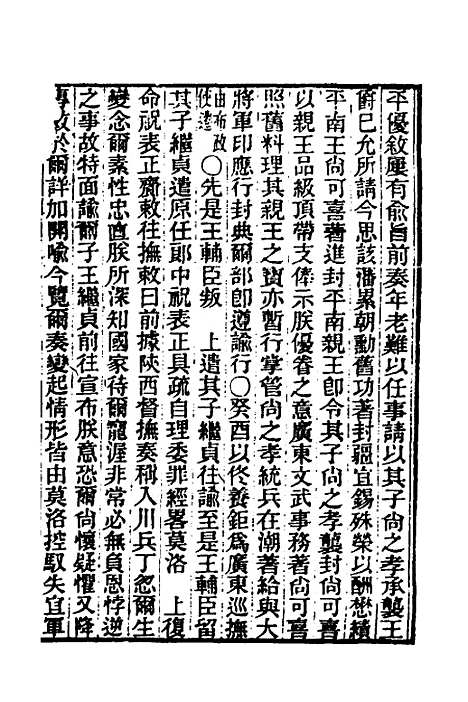 平優敘屢有俞旨前奏年老難以任事請以其子尙之孝承襲王
爵已允所請今思該藩累朝勳舊功著封疆宜錫殊榮以酬懋績
平南王尙可喜著進封平南親王卽令其子尙之孝襲封尙可喜
以親王品級頂帶支俸示朕優眷之意廣東文武事務著尙可喜
照舊料理其親王之寶亦暫行掌管尙之孝統兵在潮著給與大
將軍印應行封典爾部卽遵諭行○癸酉以佟養鉅爲廣東巡撫
由布政使遷○先是王輔臣叛 上遣其子繼貞往諭至是王輔臣留
其子繼貞遣原任郎中祝表正具疏自理委罪經畧莫洛 上復
命祝表正齎敕往撫敕曰前據陝西督撫奏稱入川兵丁忽爾生
變念爾素性忠直朕所深知國家待爾寵渥非常必無負恩悖逆
之事故特面諭爾子王繼貞前往宣布朕意恐爾尙懷疑懼又降
專敕於爾詳加開喩今覽爾奏變起情形皆由莫洛控馭失宜軍